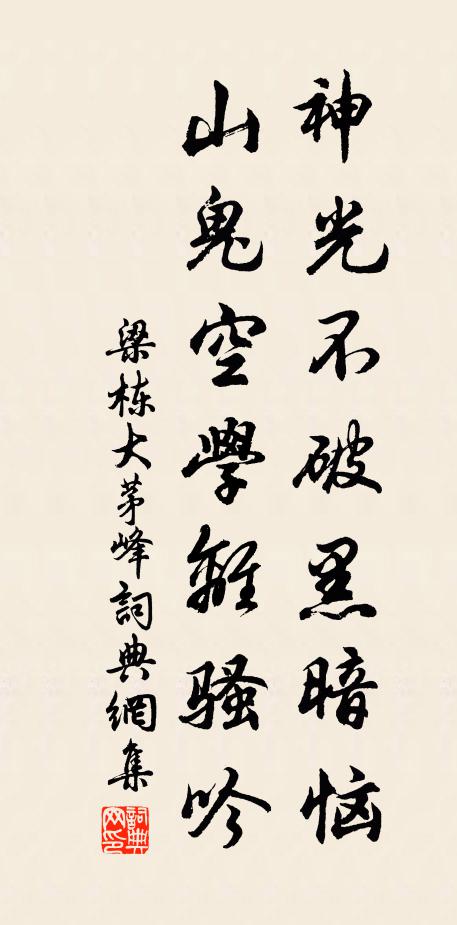 神光不破黑暗恼
山鬼空學離骚吟
梁栋大茅峰詞典網集
詞典网印